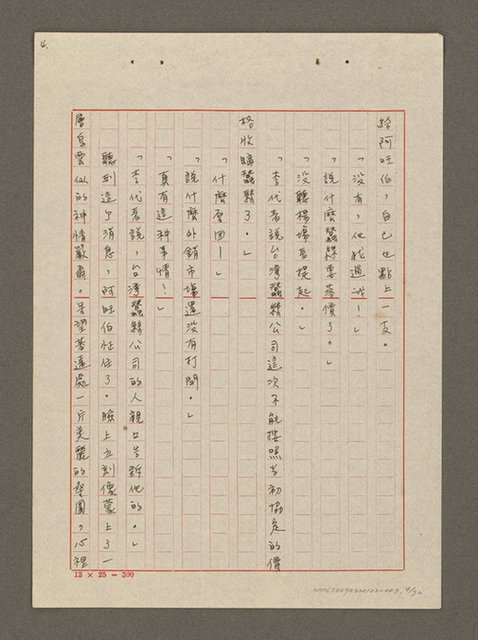 4.
給阿旺伯，自己也點上一支。
「沒有，他找過誰！」
「說什麼蠶繭要落價了。」
「沒聽楊場長提起。」
「李代表說台灣蠶絲公司這次不能按照當初協定的價
格收購蠶繭了。」
「什麼原因！」
「說什麼外銷市場還沒有打開。」
「真有這種事情！」
「李代表說，台灣蠶絲公司的人親口告訴他的。」
聽到這個消息，阿旺伯怔住了。臉上立刻像蒙上了一
層烏雲似的神情嚴肅。呆望著遠處一片美麗的桑園，心裡
12 × 25 = 300
4/92